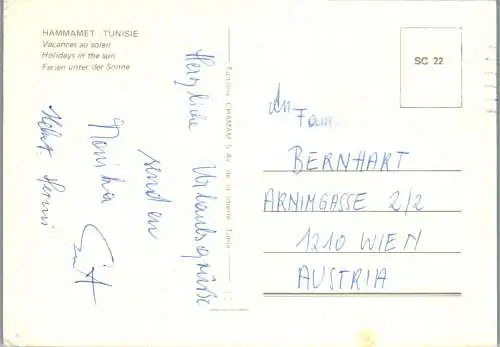 HAMMAMET - TUNISIE
Vacances au soleil
Holidays in the sun
Ferien unter der Sonne
Herzliche Urlaubsgrüße
senden
Monika
Editions CHAMAM 5 Av. de la liberté Tunis
SC 22
An
Fam.
BERNHART
ARNIMGASSE 2/2
1210 WIEN
AUSTRIA